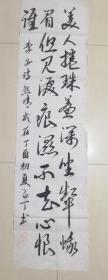 美人捲珠簾深坐颦蛾
眉但见淚痕濕不知心恨
誰 李白詩怨情 歲在丁酉初夏 丁书